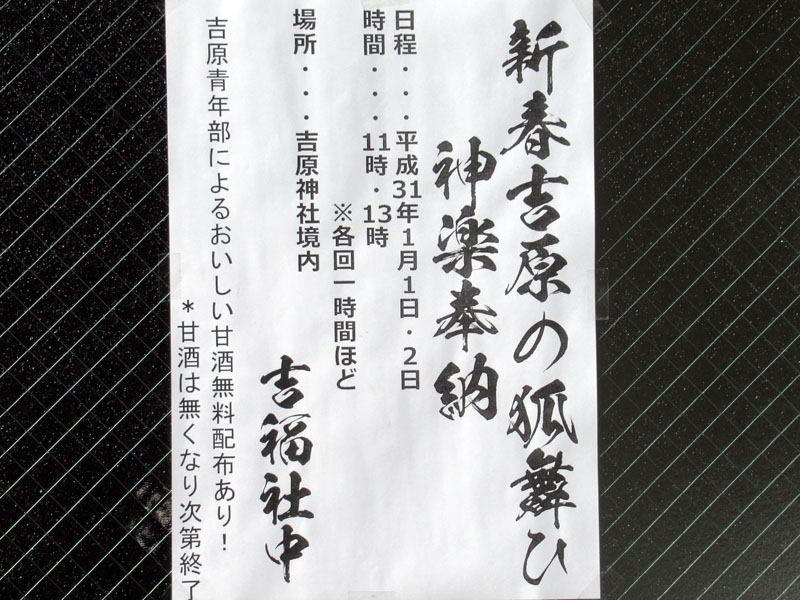 新春吉原の狐舞ひ
神楽奉納
日程・・・平成31年1月1日・2日
時間・・・11時・13時
※各回一時間ほど
場所・・・吉原神社境内
吉福社中
吉原青年部によるおいしい甘酒無料配布あり！
＊甘酒は無くなり次第終了